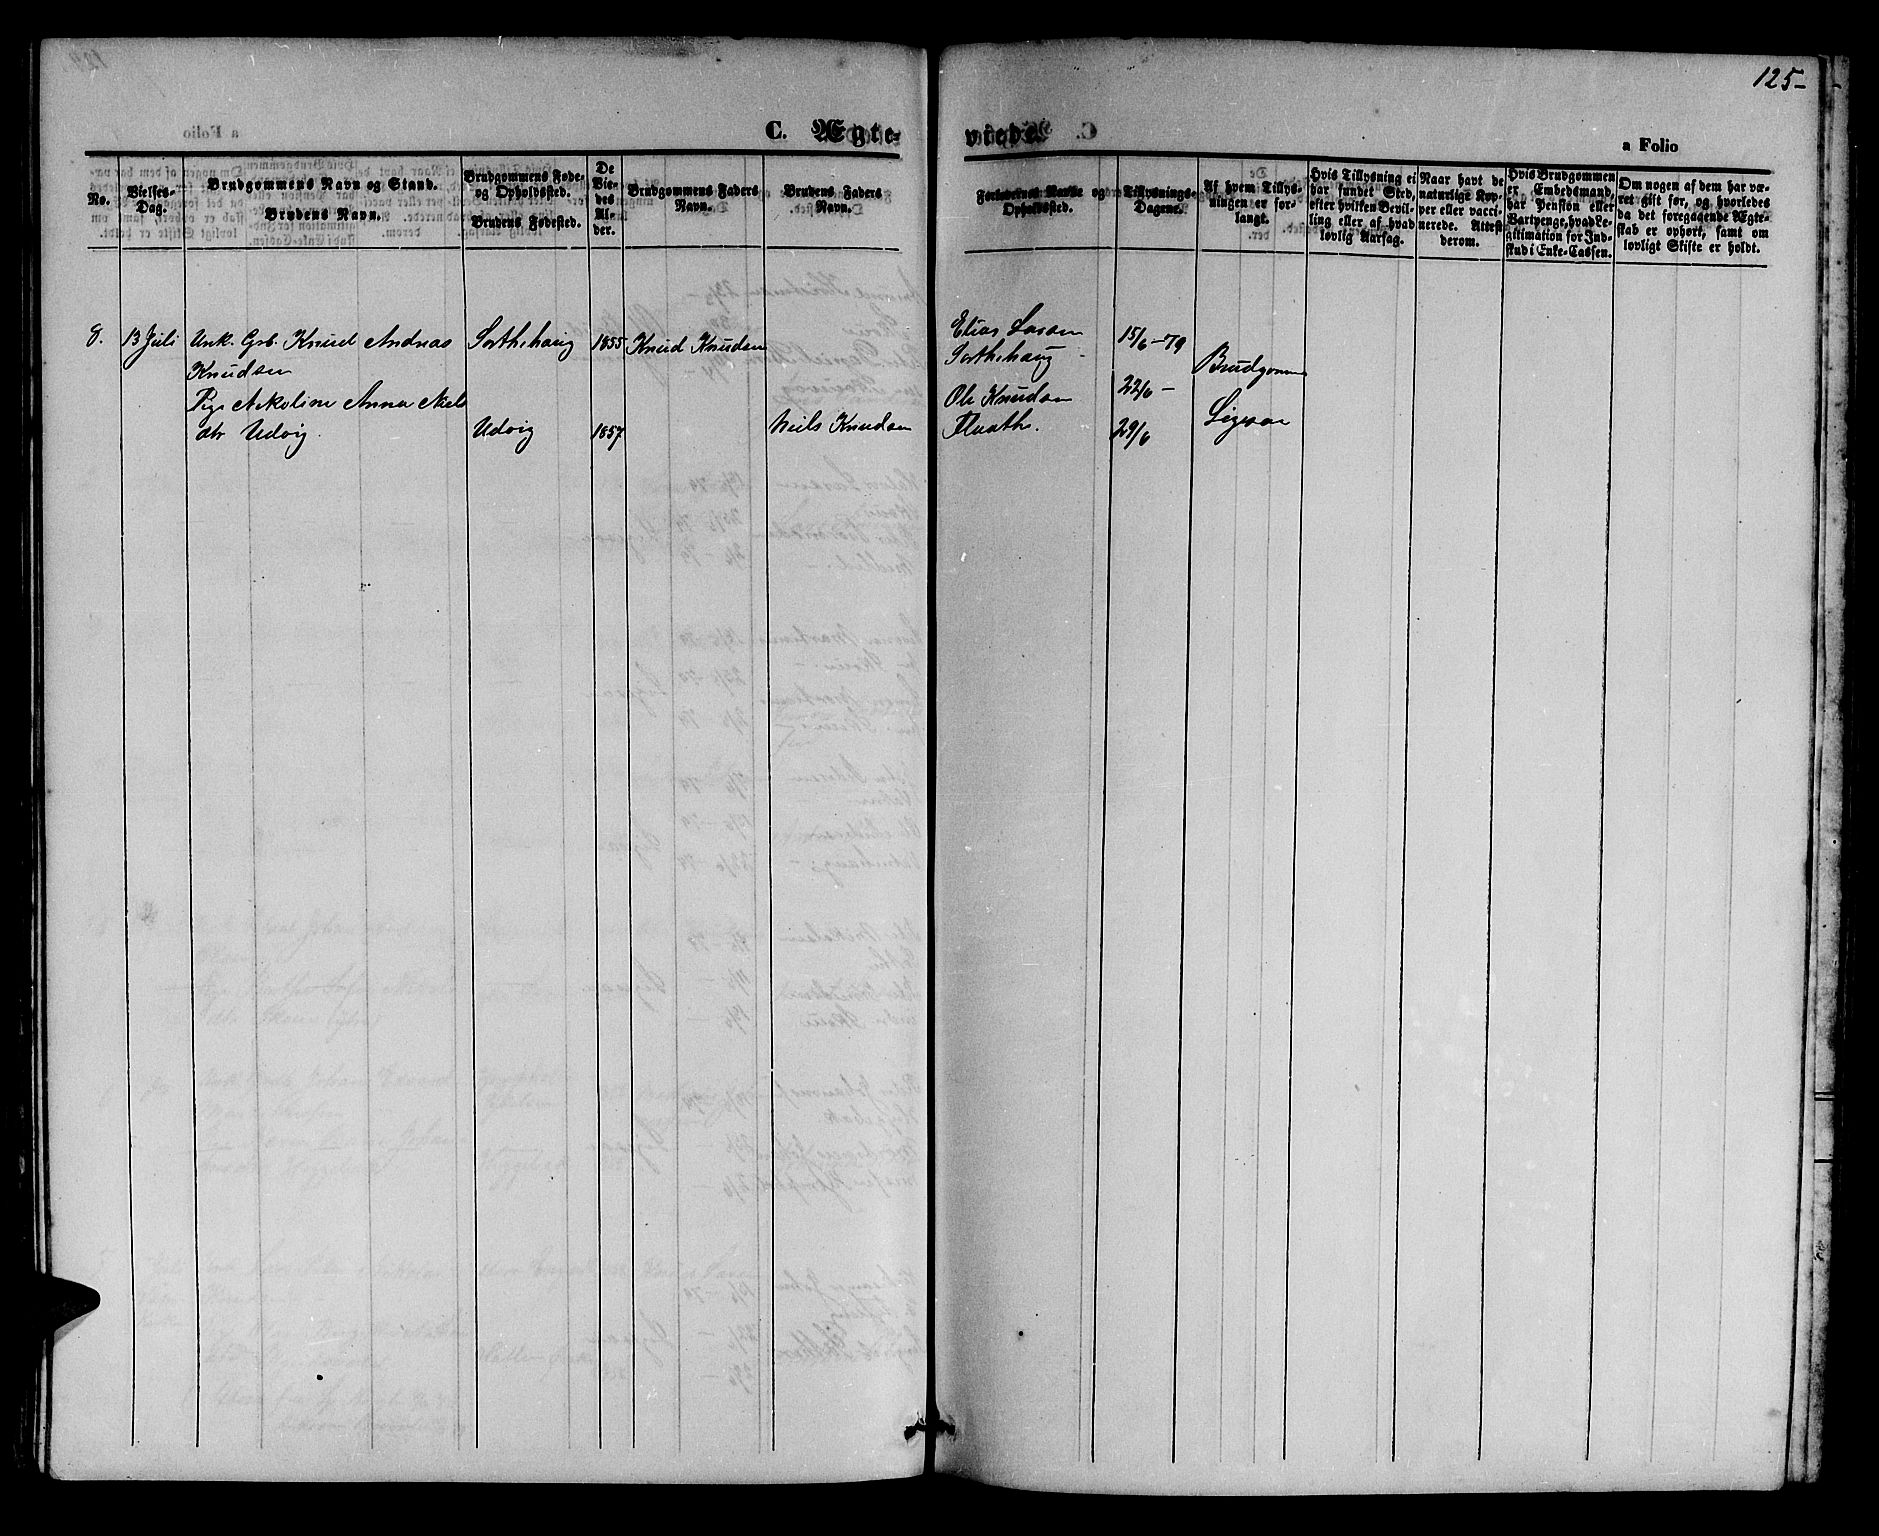 125-
C. Ægte-
vrede.
a Folio
No.
Vielses-
Dag.
Brudgommens Navn og Stand.
Brudens Navn.
Brudgommens Føde-
og Opholdsted.
Brudens Fødested.
De
Vie-
des
Al-
der.
Brudgommens Faders
Navn.
Brudens Faders
Navn.
Forlovernes Navne og
Opholdssted.
Tillysnings-
Dagene.
Af hvem Tillys-
ningen er for-
langt.
Hvis Tillysning ei
har fundet Sted,
efter hvilken Bevil-
ling eller af hvad
lovlig Aarsag.
Naar havt de
naturlige Kop-
per eller vacci-
nerede. Attest
derom.
Hvis Brudgommen
er Embedsmand,
har Pension eller
Vartpenge, hvad Le-
gitimation for Ind-
skud i Enke-Cassen.
Om nogen af dem har væ-
ret gift før, og hvorledes
da det foregaaende Ægte-
skab er ophørt, samt om
lovligt Skifte er holdt.
8. 13 Juli Unk. Grb. Knud Andreas Sorthehaug 1855 Knud Knudsen
Knudsen
Pige Nekoline Anna Niels
dtr Udvig. Udvig 1857 Niels Knudsen
Elias Larsen 15/6-79
Sorthehaug - Brudgommen
Ole Knudsen 22/6 -
Flaathe. 29/6 Ligesaa